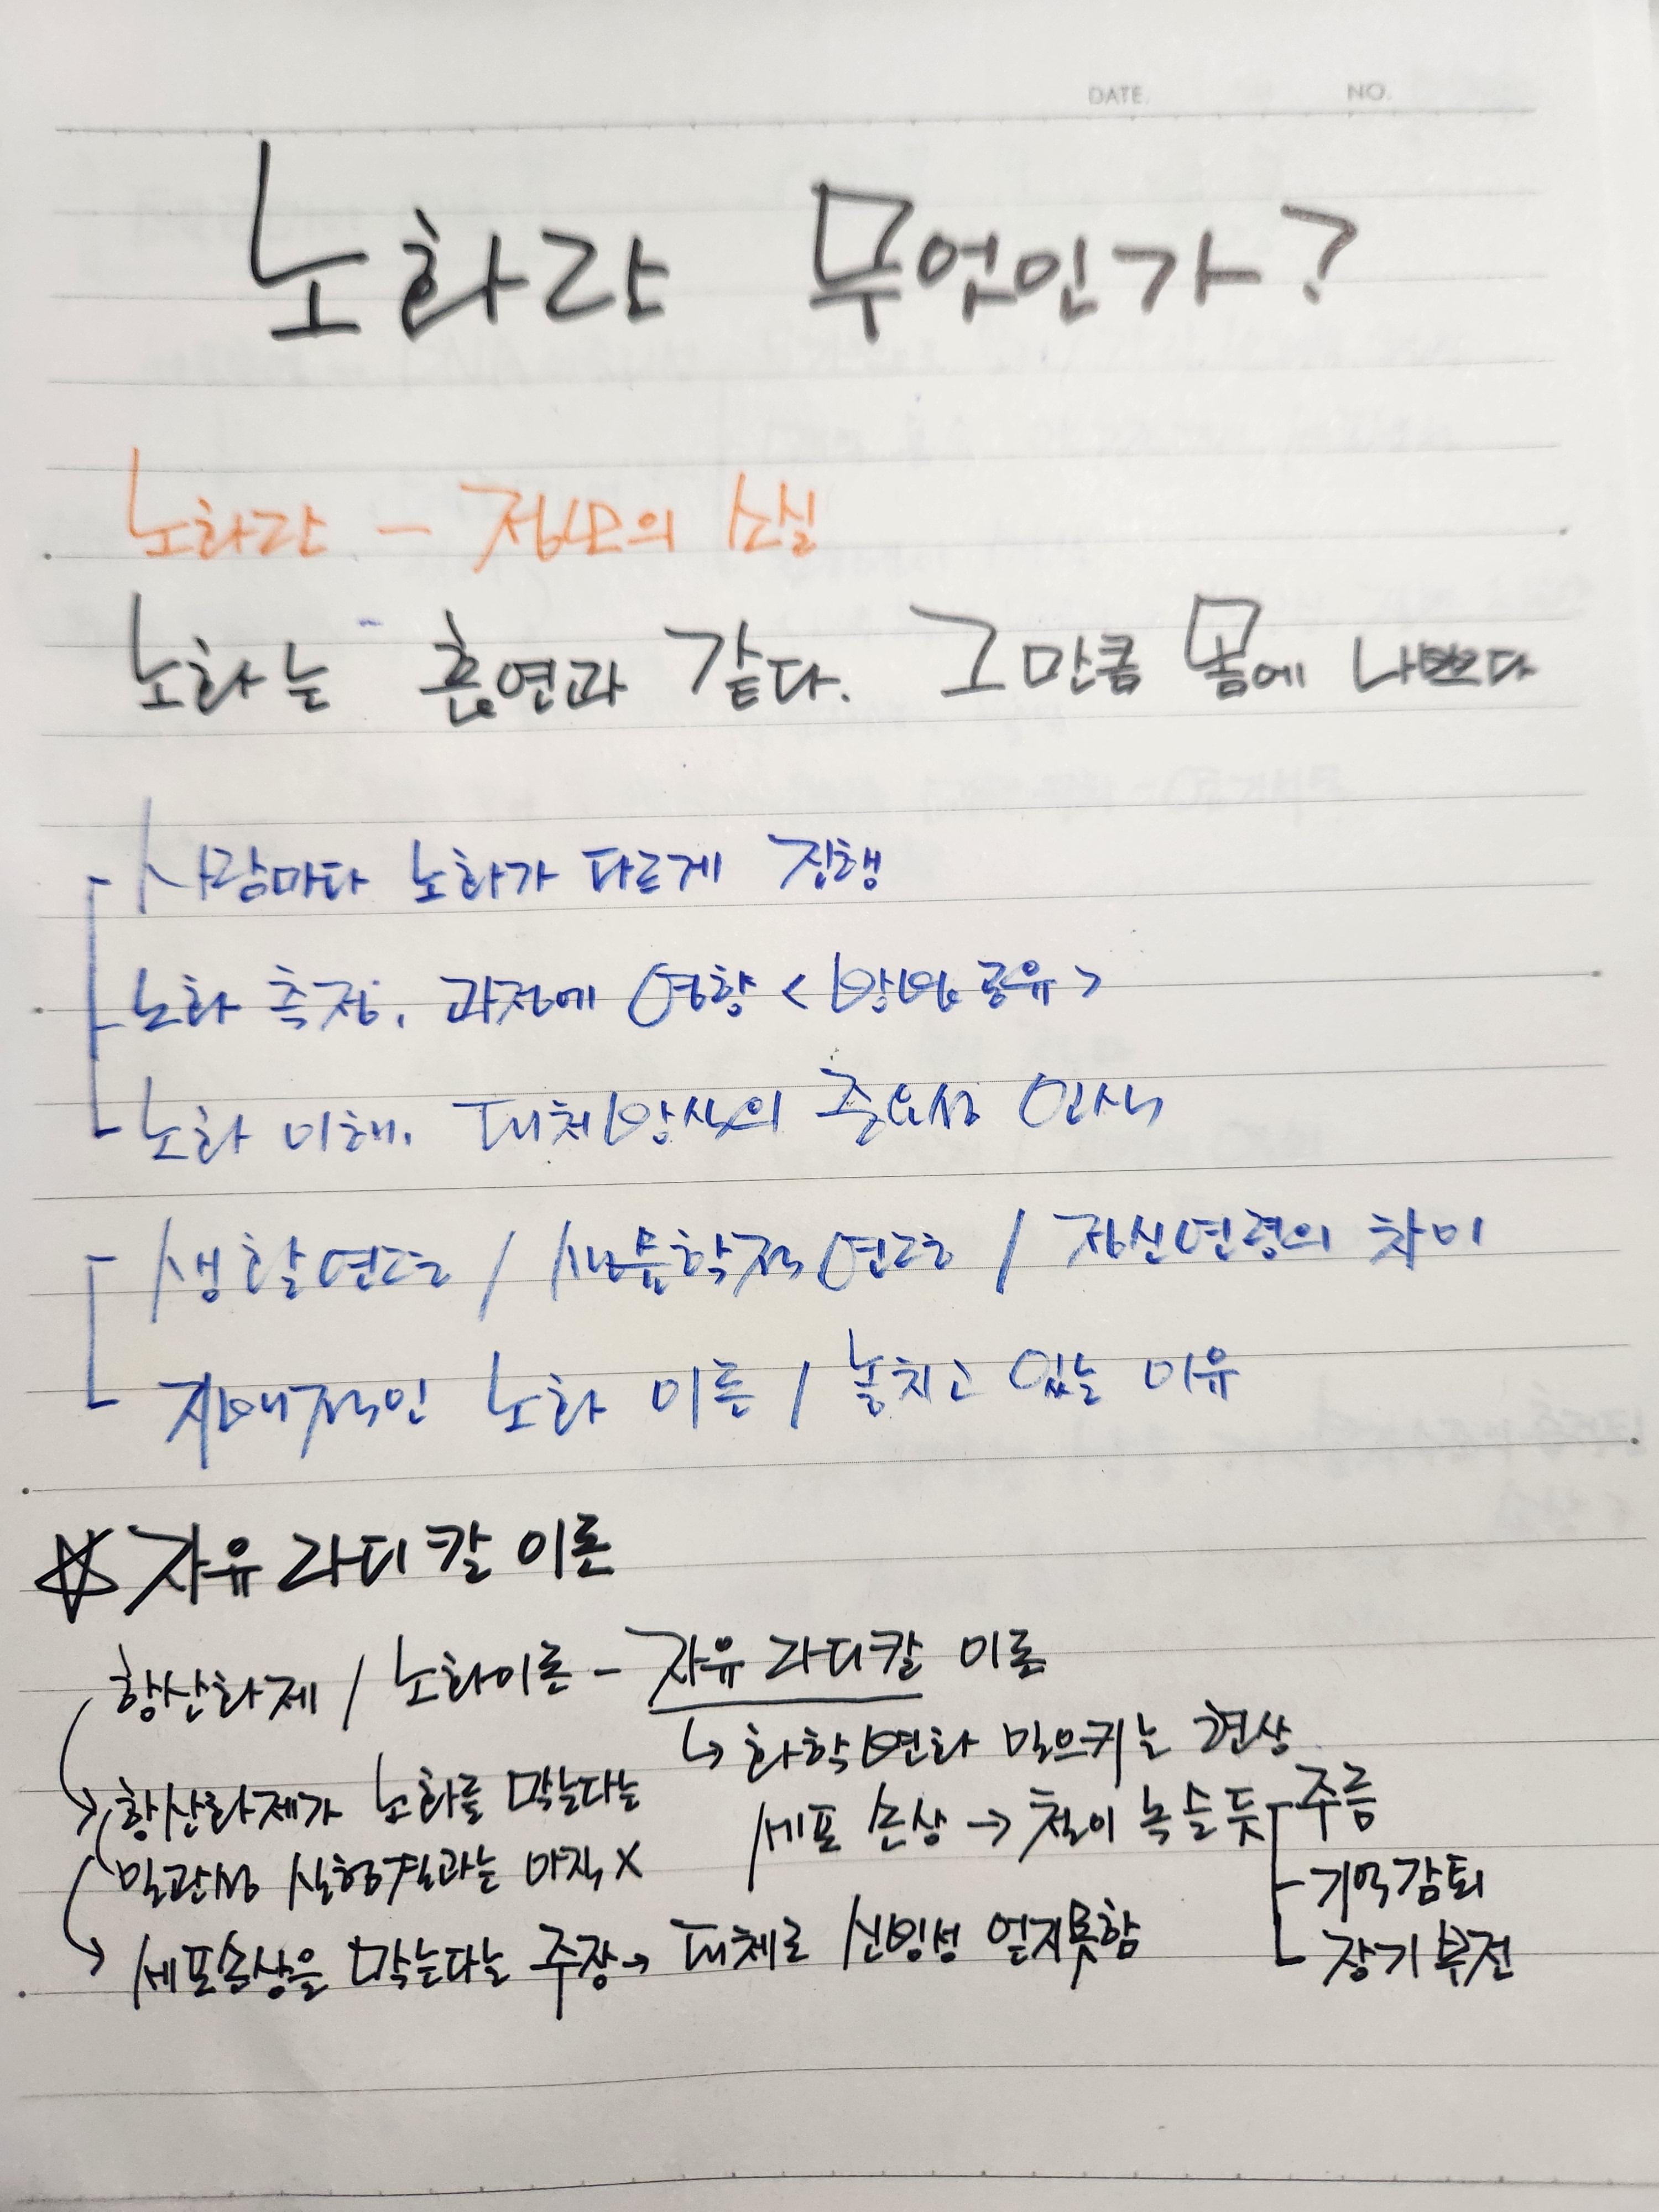 DATE. NO.
노화란 무엇인가?
노화란 - 정보의 소실
노화는 흡연과 같다. 그만큼 몸에 나쁘다
사람마다 노화가 다르게 진행
노화 측정, 과정에 영향 < 방법 공유 >
노화 이해, 대처방식의 중요성 인식
생활연도 / 생물학적 연도 / 정신연령의 차이
지배적인 노화 이론 / 놓치고 있는 이유
☆ 자유 라디칼 이론
항산화제 / 노화이론 - 자유 라디칼 이론
↳ 화학변화 일으키는 현상
→ 항산화제가 노화를 막는다는
일관성 실험결과는 아직 X
세포 손상 → 철이 녹슬듯
주름
기억감퇴
장기 부전
→ 세포손상을 막는다는 주장 → 대체로 신빙성 얻지못함